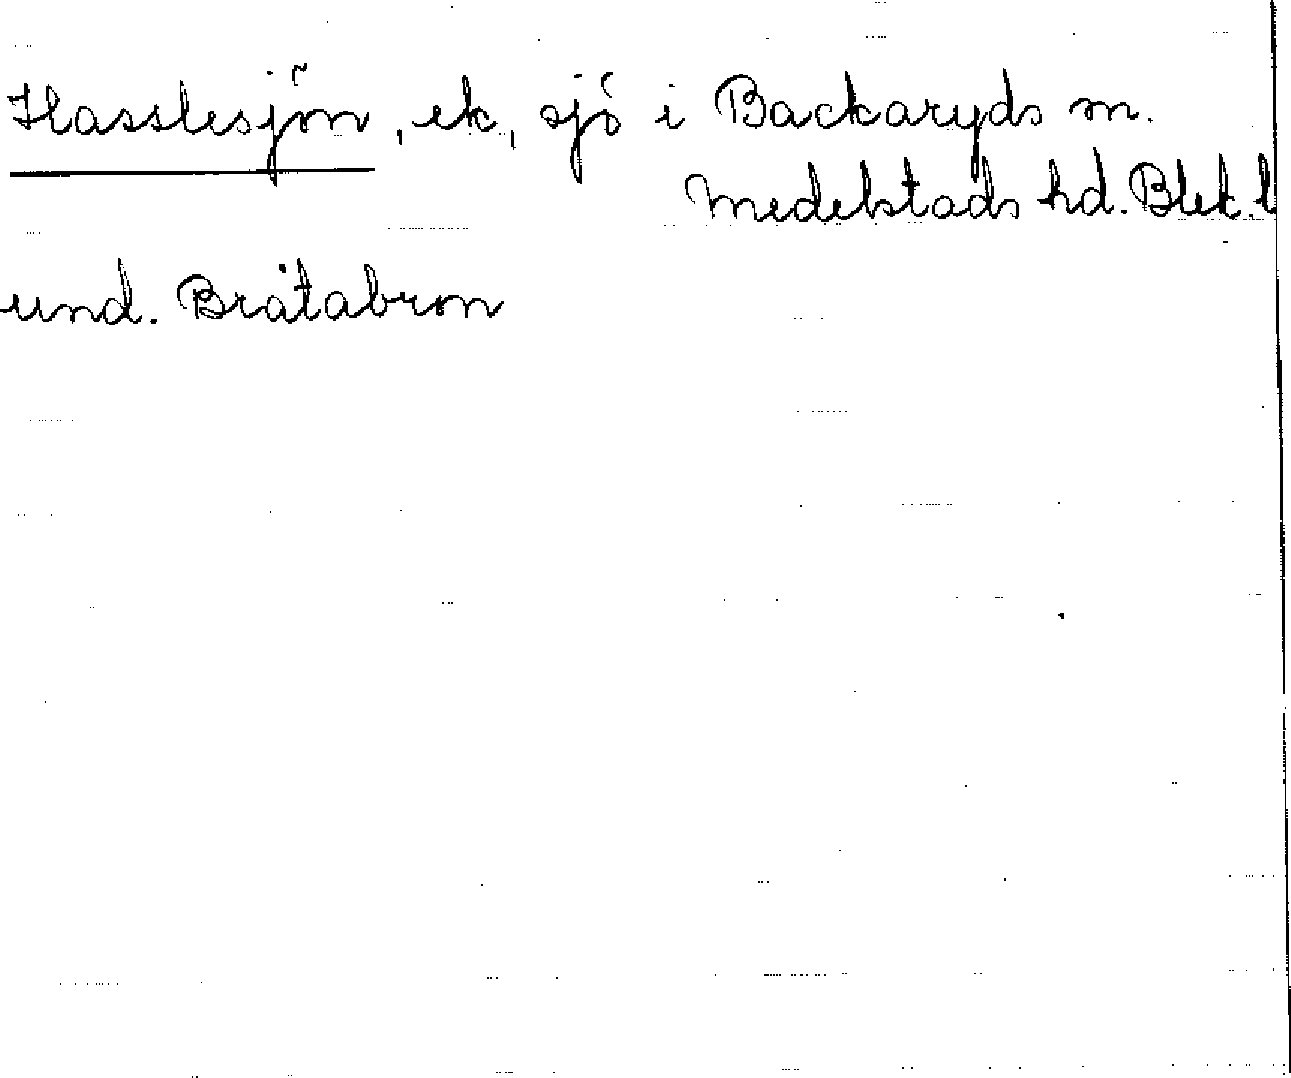 Hasslesjön, ek, sjö i Backaryds sn.
Medelstads hd. Blek. l
und. Bråtabron